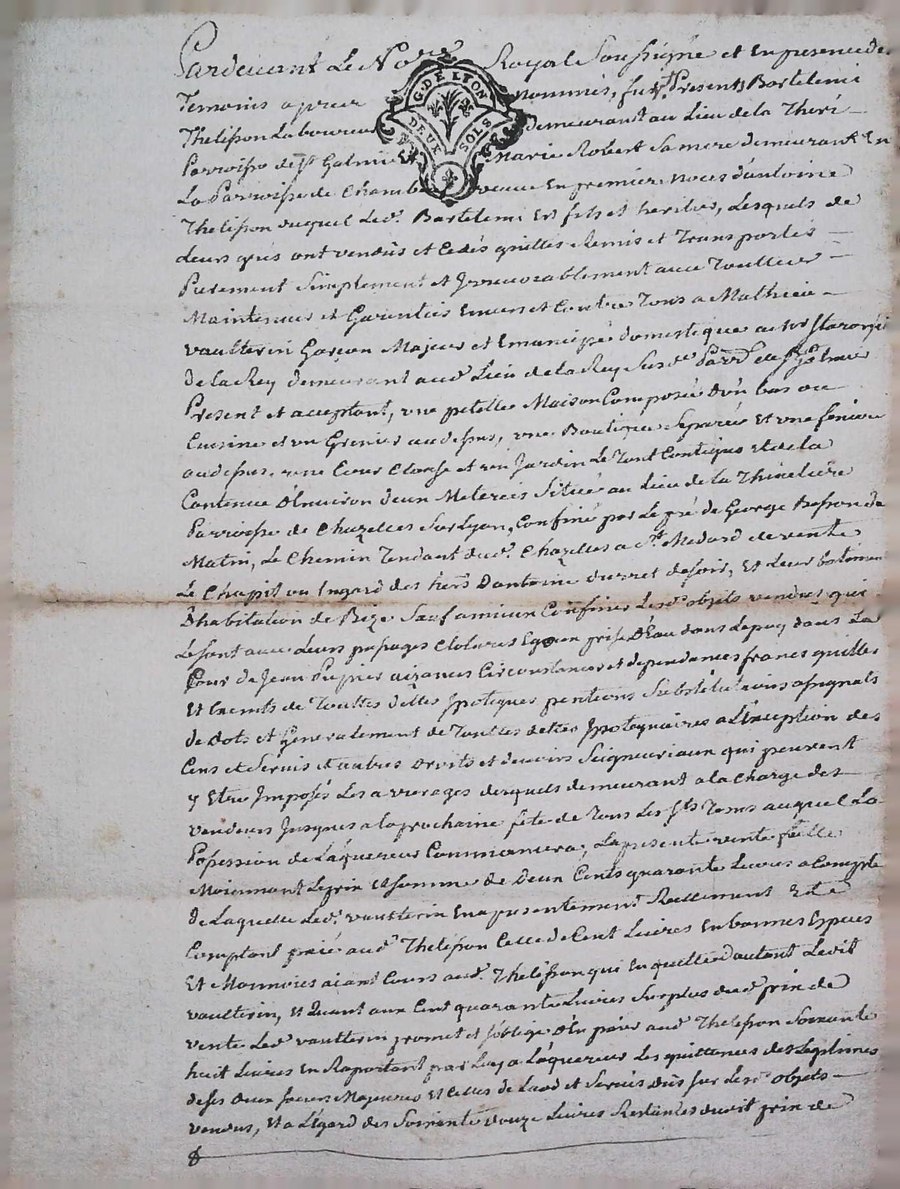 Pardevant Le No.re Royal Soussigné et En presence des
G. DE LYON
DEUX SOLS
Temoins apres nommés, fut Presents Bartelemi
Thelisson Laboureur demeurant au Lieu de la Thori
Parroisse de St Galmier Marie Robert Sa mere demeurant En
La Parroisse de Chamb veuve En premiere noces d'antoine
Thelisson duquel Led. Bartelemi Est fils et heritier, Lesquels de
Leurs grés ont vendûs et Cedés quittés Remis et Transportés
Purement Simplement et Irrevocablement avec Touttes
Maintenues et Garenties Envers et Contre Tous a Mathieu
vaulterin Garcon Majeur et Emancipé domestique au
de la Rey demeurant aud. Lieu de la Rey Susd. Parr. de
Present et acceptant, une petitte Maison Composée D'un bas ou
Cuisine et un Grenier au dessus, une Boutique Separée Et une feniere
au dessus, une Cour Clause et un Jardin Le Tout Contigus Et de la
Contenue d'Environ d'eun Meterée Situé au Lieu de la Thiveliere
Parroisse de Chazelles Sur Lyon, Confiné par Le pré de George Besson de
Matin, Le Chemin Tendant dud. Chazelles a St. Medard de vente
Le Chapit ou Engard des hers D'antoine de soir, Et Leur batiment
D'habitation de Bize Sauf a mieux Confiner Lesd. objets vendus qui
Le sont avec Leurs passages Clotures Egoux prise D'Eau dans Le puy dans La
Cour de Jean aizances Circonstances et dependances francs quittes
Et Exempts de Touttes dettes Ipoteques pentions Substitutions assignats
de dots et Generalement de Touttes dettes Ipotequaires a L'Exception des
Cens et Servis Et autres Droits et devoirs Seigneuriaux qui peuvent
y Etre Imposés Les arrerages desquels demeurant a la Charge des
vendeurs Jusques a la prochaine fête de Tous Les Sts Tems auquel La
Possession de L'aquereur Commancera; La presente vente faitte
Moiennant Le prix Et somme de Deux Cents quarante Livres a Compte
De Laquelle Led. vaulterin En a presentement Reellement Et de
Comptant paié aud. Thelisson Celle de Cent Livres En bonnes Especes
Et Monnoies aiant Cours aud. Thelisson qui En quitte d'autant Ledit
vaulterin, Et Quant aux Cent quarante Livres Surplus dud. prix de
vente Led. vaulterin promet et s'oblige d'En paier aud. Thelisson Soixante
huit Livres En Raportant par Luy a L'aquereur Les quittances des Legitimes
de ses deux Soeurs Majeures Et Celles de Laod et Servis Dûs Sur Lesd. objets
vendus, Et a L'Egard des Soixante douze Livres Restantes dudit prix de